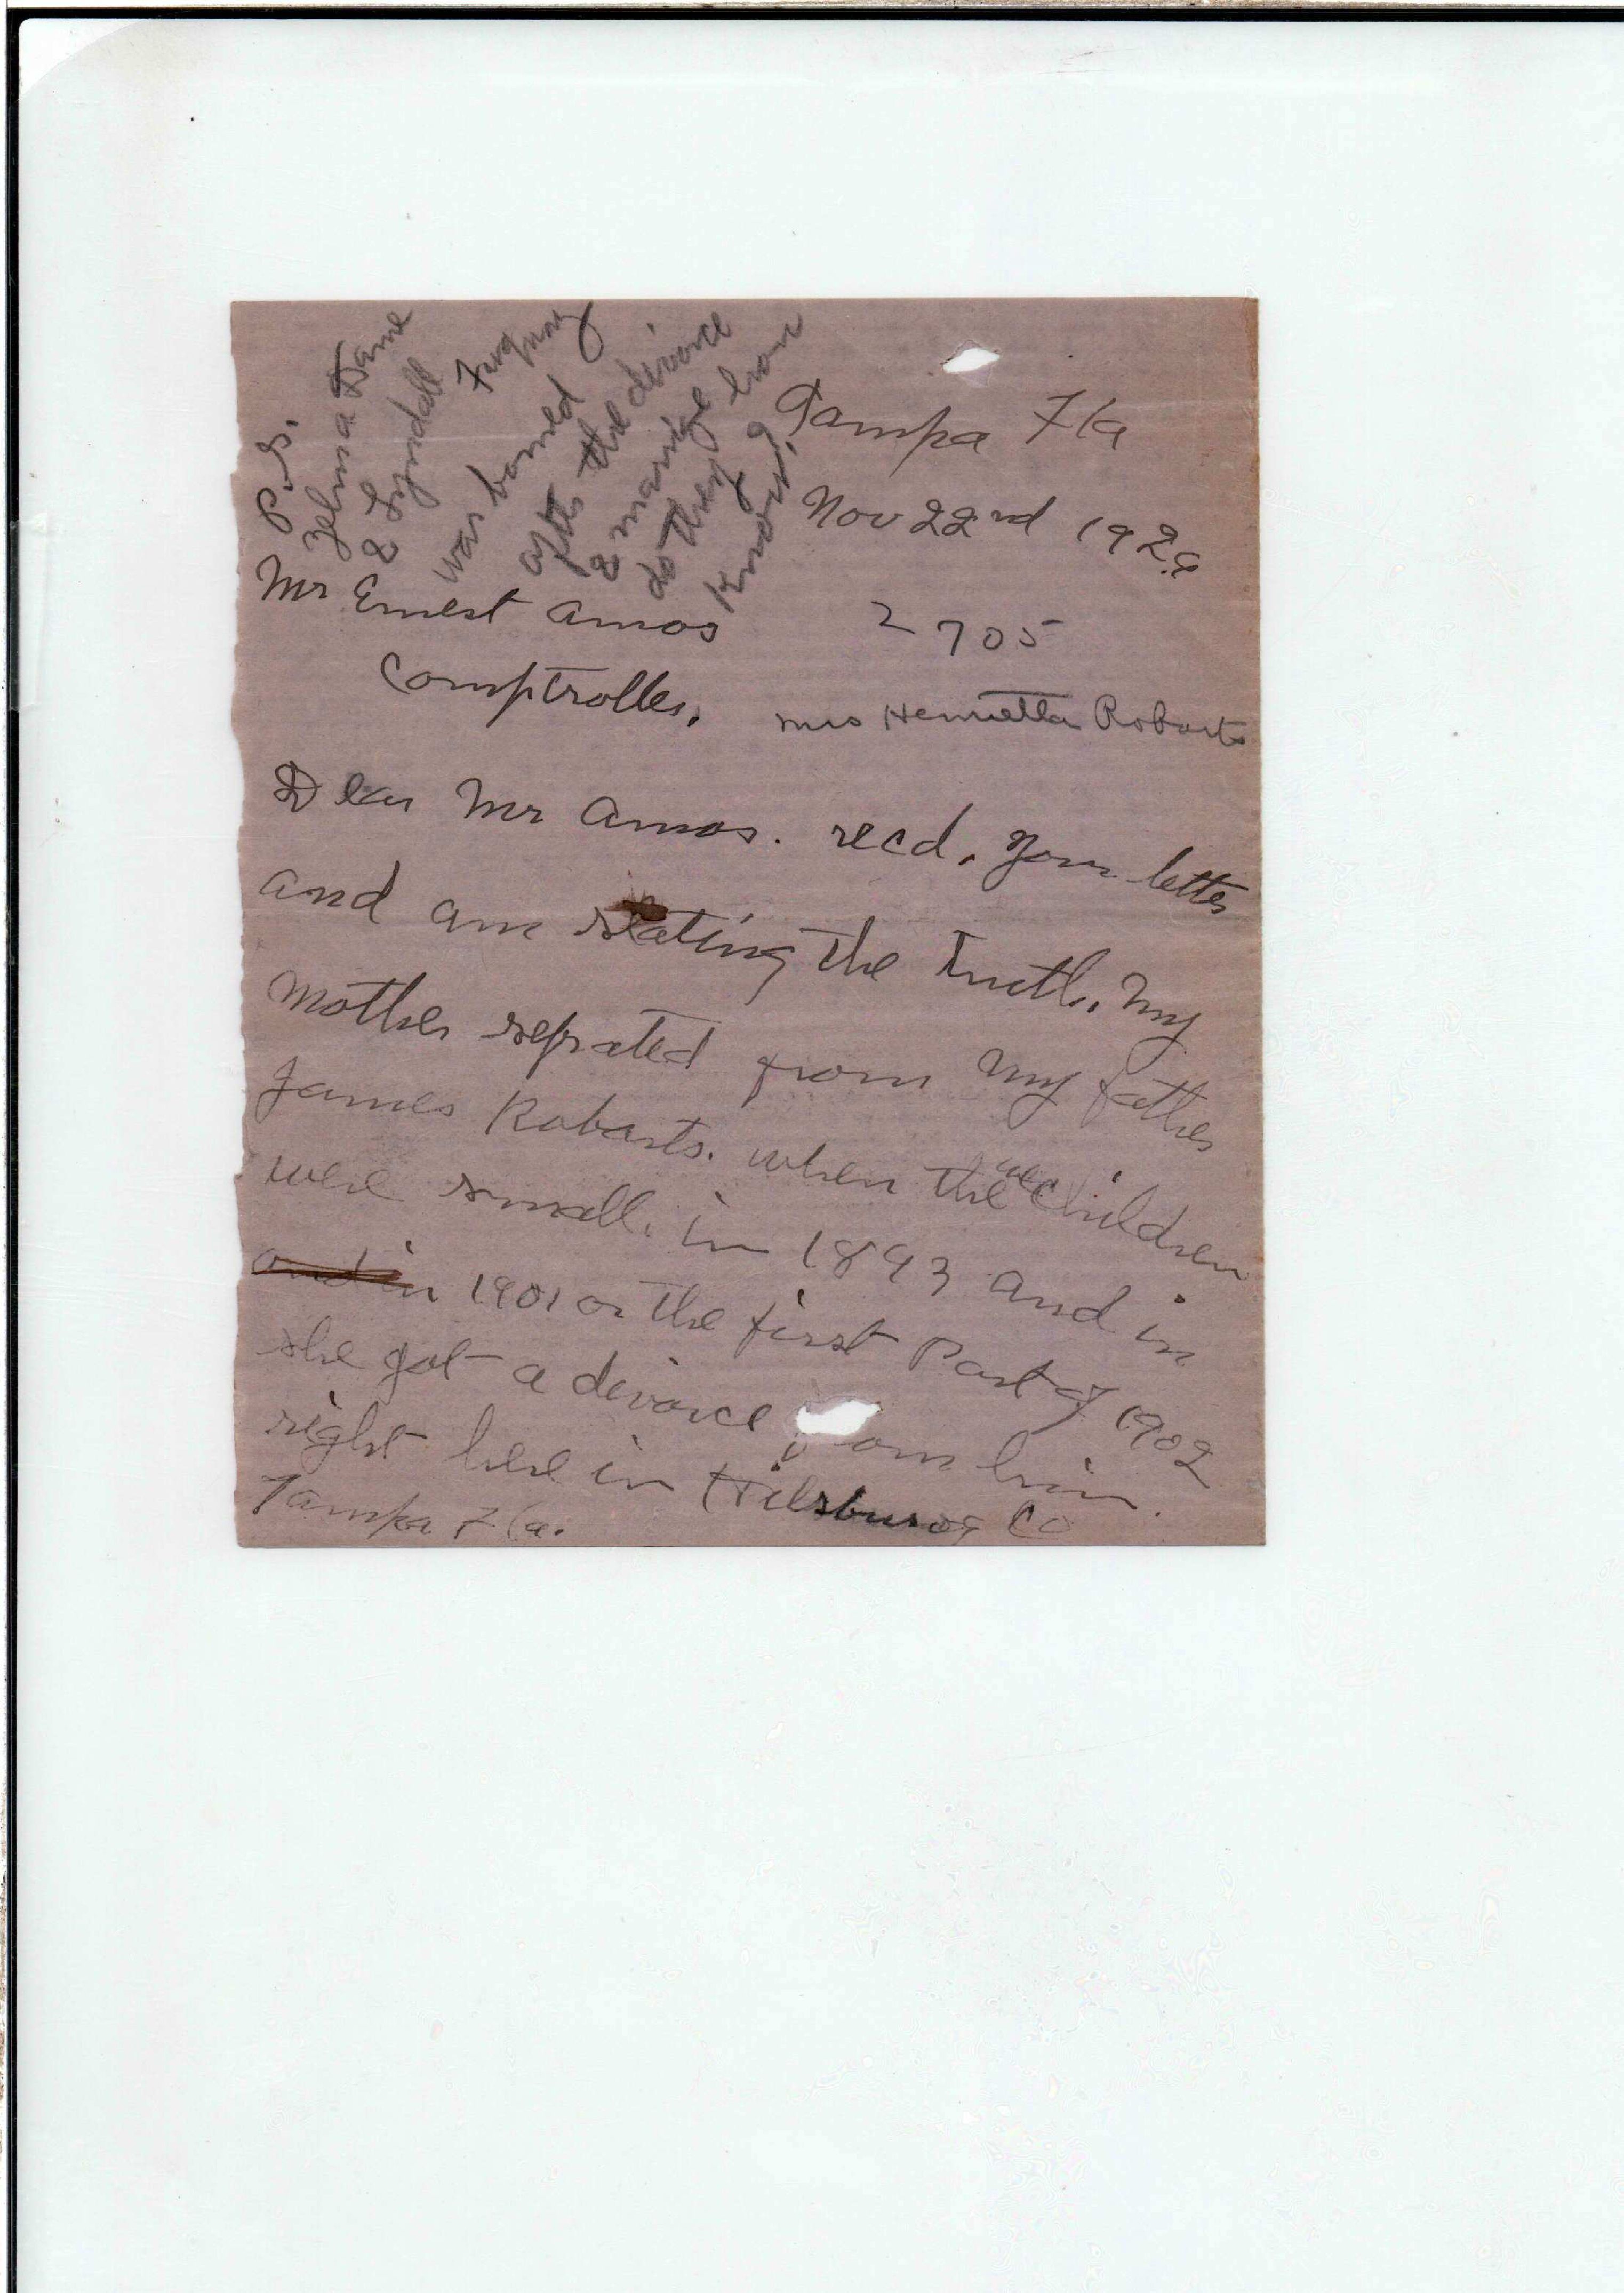 P.S.
Zelma Dame
& Lyndall
was borned
after the divorce
& marrige
do they
know?
Tampa Fla
Nov 22nd 192
Mr Ernest Amos
2705
Comptroller.
Mrs Henrietta Robarts
Dear Mr Amos. recd. your letter
and am stating the truth. My
Mother seprated from my father
James Robarts. when the we children
were small. in 1893 and in
and in 1901 or the first Part of 1902
she got a divorce from him
right here in Hilsburog Co
Tampa Fla.